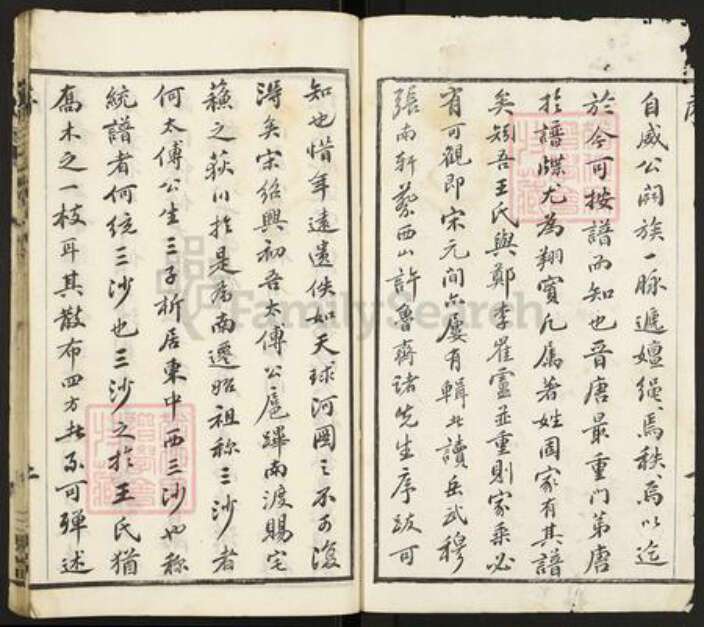 自威公闢族一脉遞嬗繩焉秩焉以迄
於今可按譜而知也晉唐最重門第唐
於譜牒尤為翔實凡属著姓國家有其譜
矣矧吾王氏與鄭李崔盧並重則家乘必
有可觀即宋元間亦屢有輯此讀岳武穆
張南軒蔡西山許魯齋諸先生序跋可
知也惜年遠遺佚如天球河圖之不可復
淂矣宋紹興初吾太傅公扈蹕南渡賜宅
蘓之荻川於是為南遷始祖称三沙者
何太傅公生三子析居東中西三沙也称
統譜者何統三沙也三沙之於王氏猶
喬木之一枝耳其散布四方者不可殫述
FamilySearch